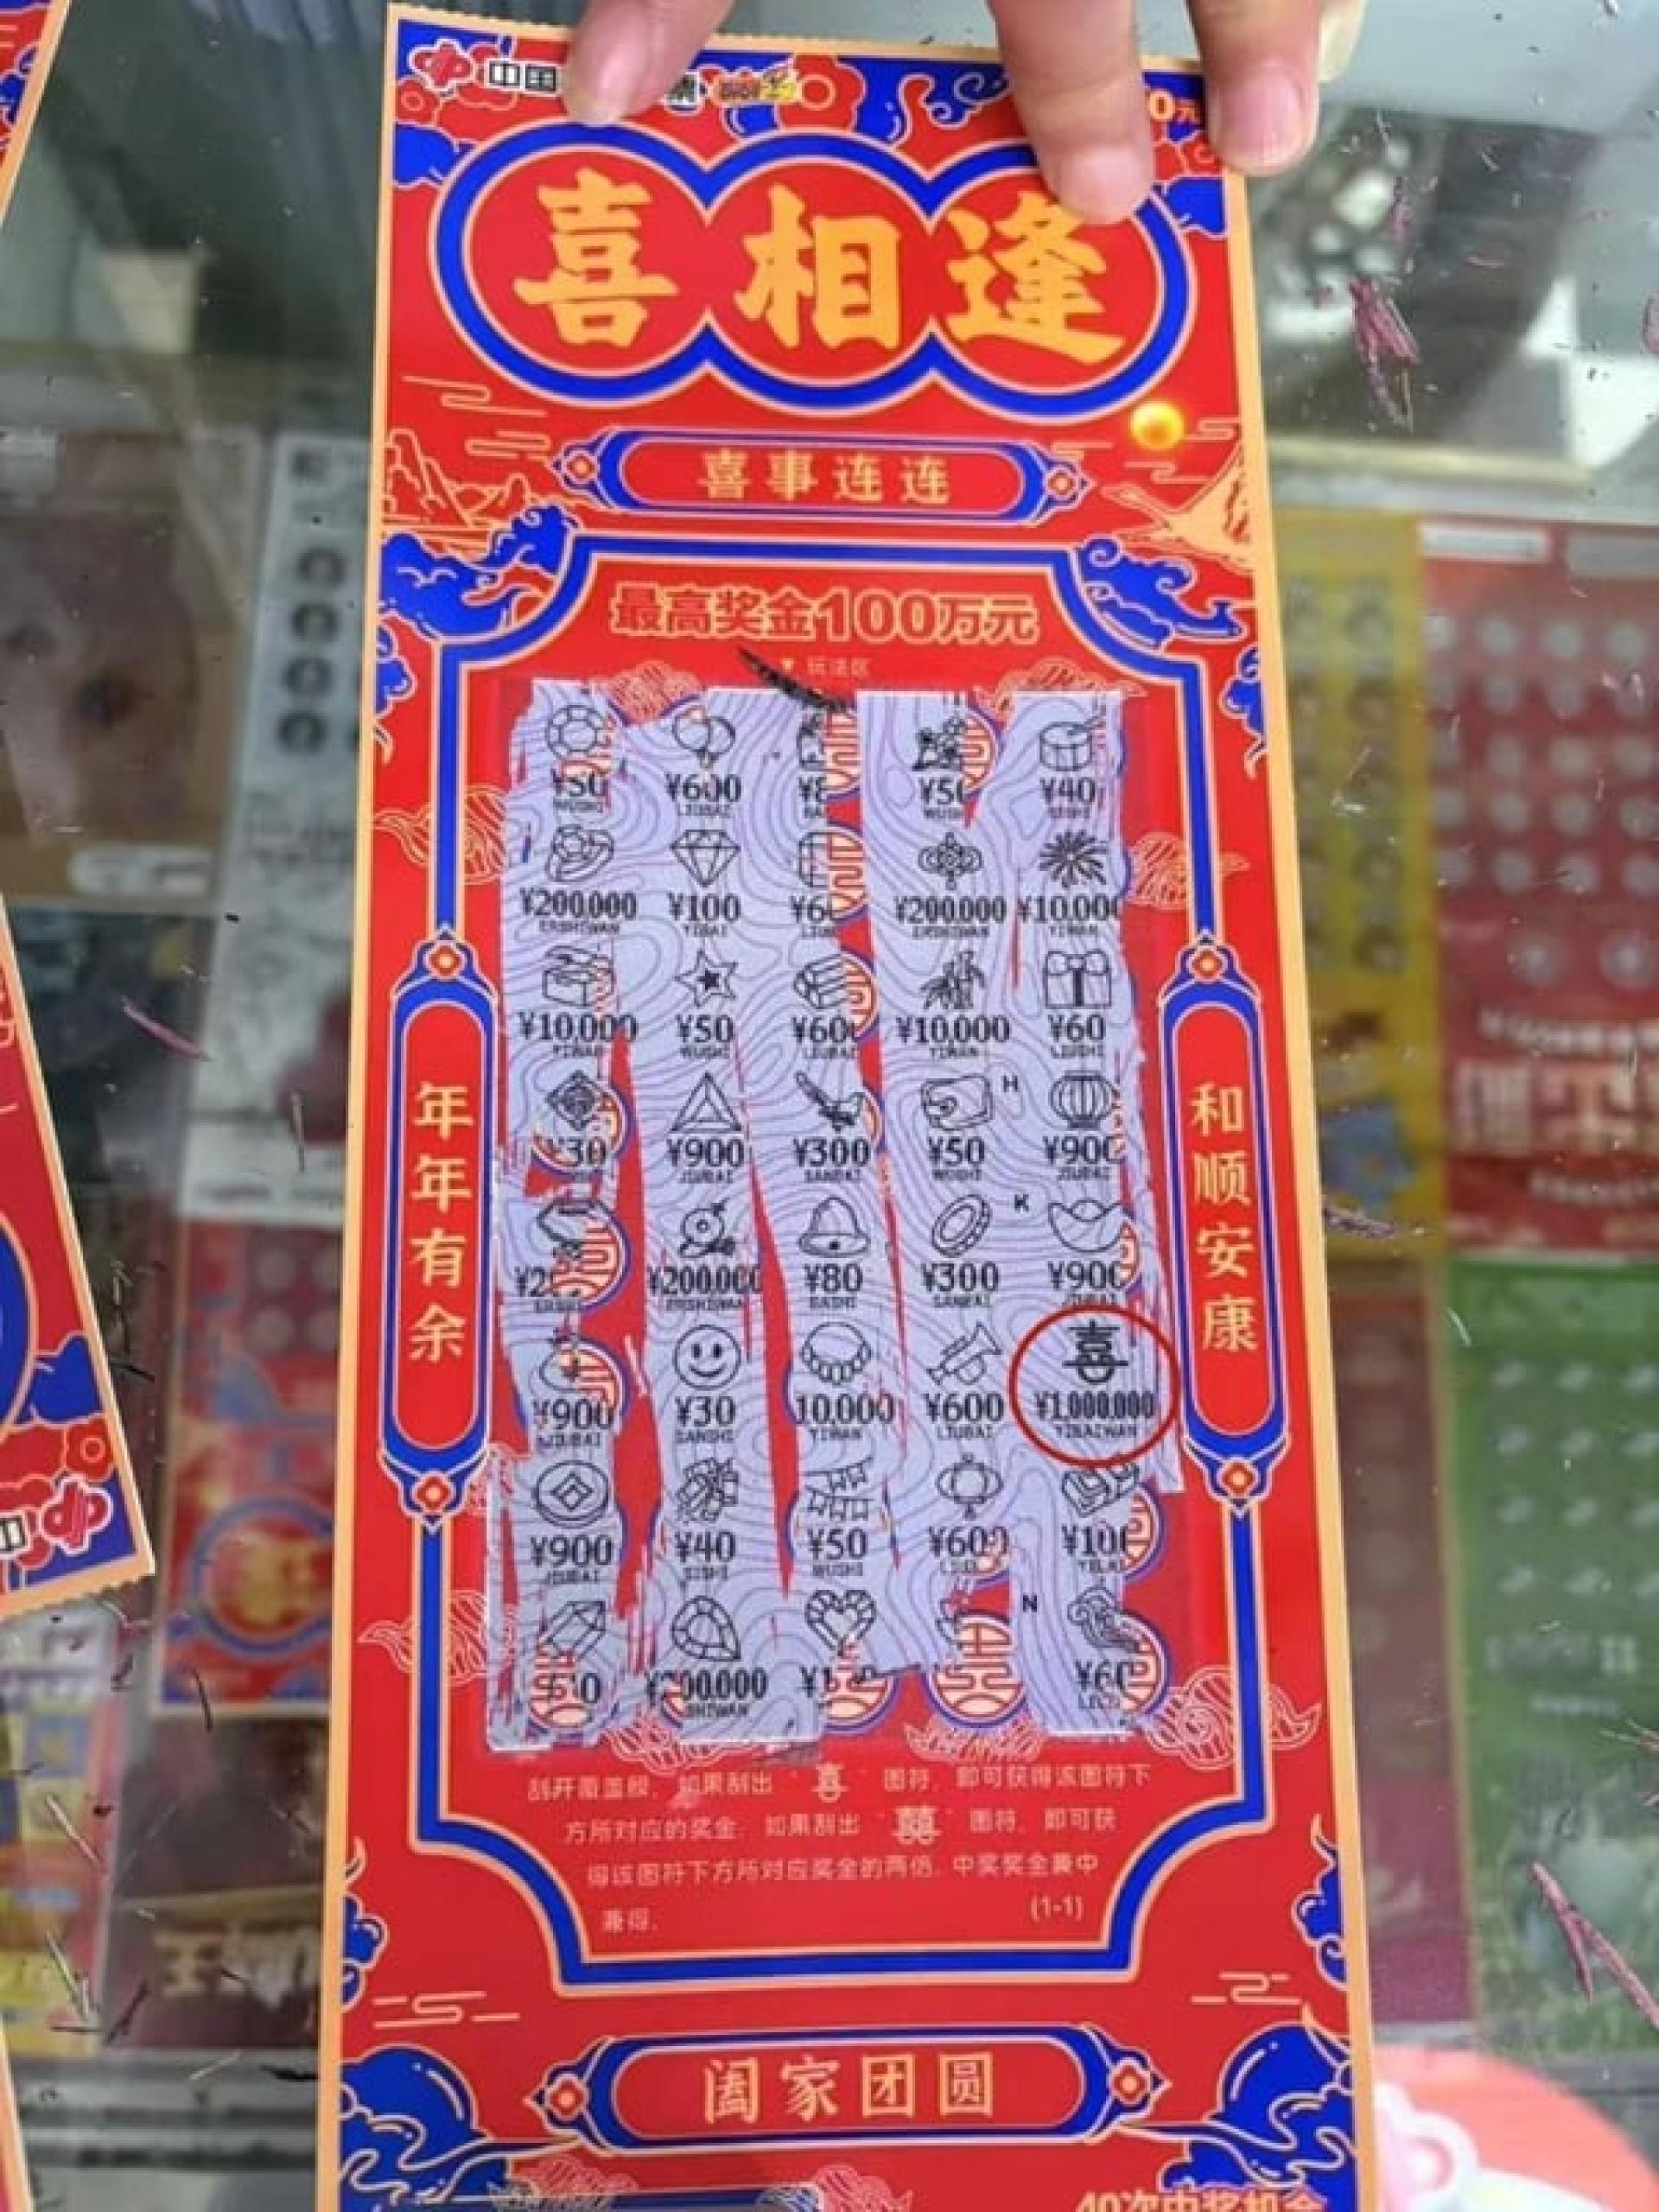 中国
0元
喜相逢
喜事连连
最高奖金100万元
▼ 玩法区
¥50 ¥600 ¥40
¥200,000 ¥100 ¥200,000 ¥10,000
ERSHIWAN YIBAI ERSHIWAN YIWAN
¥10,000 ¥50 ¥600 ¥10,000 ¥60
YIWAN WUSHI LIUBAI YIWAN LIUSHI
H
¥30 ¥900 ¥300 ¥50 ¥900
JIUBAI SANBAI WUSHI JIUBAI
K
¥200,000 ¥80 ¥300 ¥900
ERSHIWAN BASHI SANBAI JIUBAI
喜
¥900 ¥30 10,000 ¥600 ¥1,000,000
JIUBAI SANSHI YIWAN LIUBAI YIBAIWAN
¥900 ¥40 ¥50 ¥600 ¥100
JIUBAI SISHI WUSHI YIBAI
N
刮开覆盖膜，如果刮出“喜”图符，即可获得该图符下
方所对应的奖金，如果刮出“囍”图符，即可获
得该图符下方所对应奖金的两倍，中奖奖金兼中
兼得。
(1-1)
年年有余
和顺安康
阖家团圆
40次中奖机会